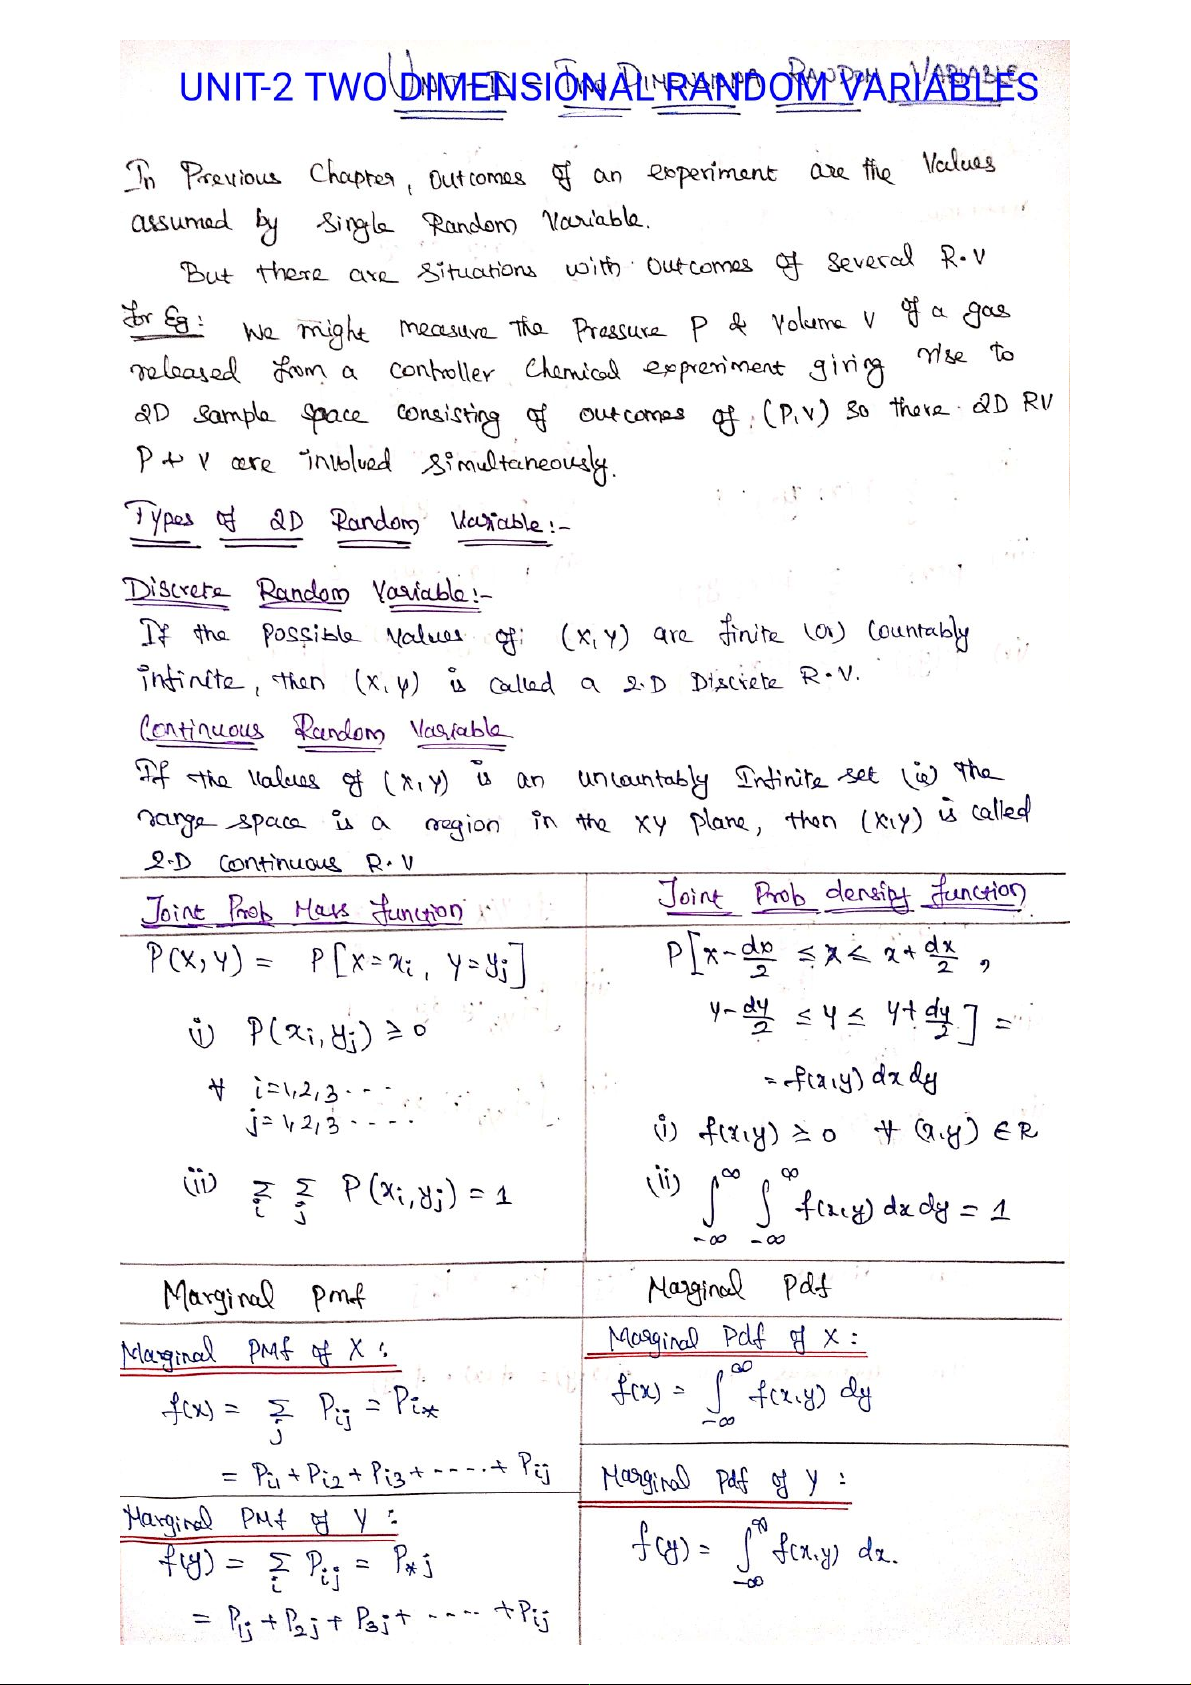 UNIT-2 TWO DIMENSIONAL RANDOM VARIABLES
In Previous Chapter, outcomes of an experiment are the Values
assumed by Single Random Variable.
But there are situations with outcomes of several R.V
for Eg: We might measure the Pressure P & Volume V of a gas
released from a controller Chemical expreriment giving rise to
2D Sample Space consisting of outcomes of (P,V) So there 2D RV
P & V are involved Simultaneously.
Types of 2D Random Variable:-
Discrete Random Variable:-
If the possible values of (X,Y) are finite (or) Countably
infinite, then (X,Y) is called a 2.D Discrete R.V.
Continuous Random Variable
If the Values of (X,Y) is an uncountably Infinite set (ie) the
range space is a region in the XY plane, then (X,Y) is called
2.D continuous R.V
Joint Prob Mass function
P(X,Y) = P[X=xi, Y=yj]
i) P(xi,yj) ≥ 0
∀ i=1,2,3....
j=1,2,3....
(ii) Σi Σj P(xi,yj) = 1
Joint Prob density function
P[x-dx/2 ≤ x ≤ x+dx/2,
y-dy/2 ≤ y ≤ y+dy/2] =
= f(x,y) dx dy
(i) f(x,y) ≥ 0 ∀ (x,y) ∈ R
(ii) ∫-∞^∞ ∫-∞^∞ f(x,y) dx dy = 1
Marginal Pmf
Marginal PMf of X:
f(x) = Σj Pij = Pi*
= Pi1 + Pi2 + Pi3 + ----.+ Pij
Marginal PMf of Y:
f(y) = Σi Pij = P*j
= P1j + P2j + P3j + ---- + Pij
Marginal Pdf
Marginal Pdf of X:
f(x) = ∫-∞^∞ f(x,y) dy
Marginal Pdf of Y:
f(y) = ∫-∞^∞ f(x,y) dx.